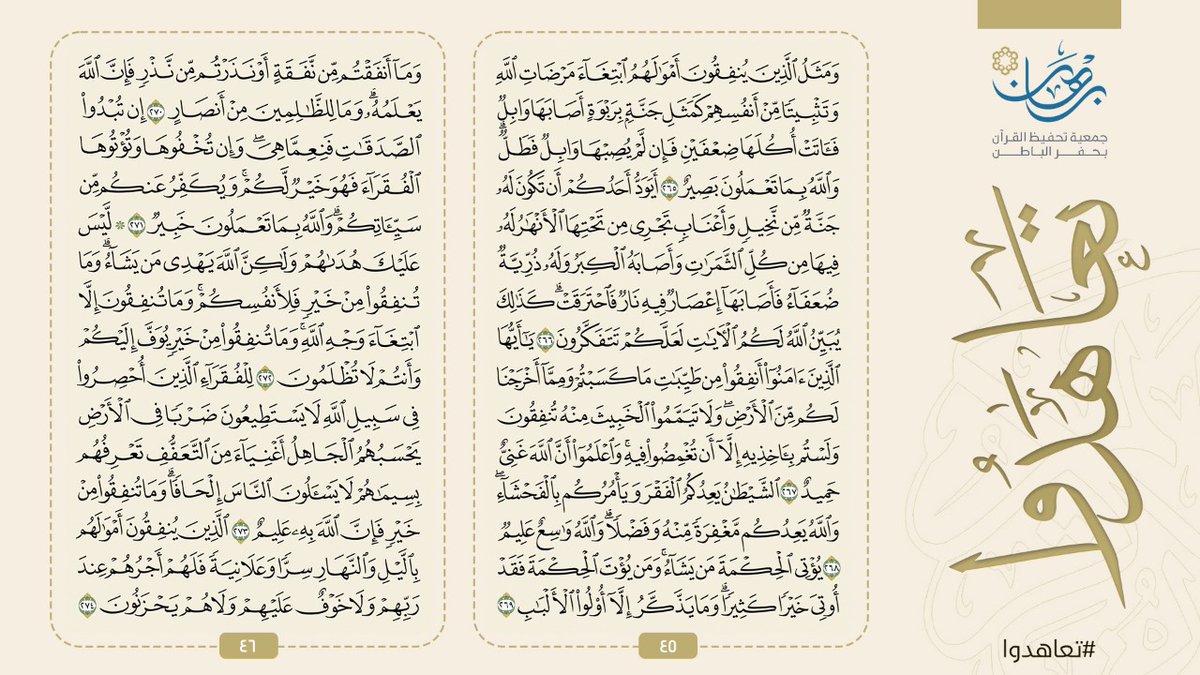 برهان
جمعية تحفيظ القرآن
بحفر الباطن
تعاهدوا
#تعاهدوا
وَمَثَلُ ٱلَّذِينَ يُنفِقُونَ أَمْوَٰلَهُمُ ٱبْتِغَآءَ مَرْضَاتِ ٱللَّهِ
وَتَثْبِيتًا مِّنْ أَنفُسِهِمْ كَمَثَلِ جَنَّةٍۭ بِرَبْوَةٍ أَصَابَهَا وَابِلٌ
فَـَٔاتَتْ أُكُلَهَا ضِعْفَيْنِ فَإِن لَّمْ يُصِبْهَا وَابِلٌ فَطَلٌّۗ
وَٱللَّهُ بِمَا تَعْمَلُونَ بَصِيرٌ ٢٦٥ أَيَوَدُّ أَحَدُكُمْ أَن تَكُونَ لَهُۥ
جَنَّةٌ مِّن نَّخِيلٍ وَأَعْنَابٍ تَجْرِى مِن تَحْتِهَا ٱلْأَنْهَٰرُ لَهُۥ
فِيهَا مِن كُلِّ ٱلثَّمَرَٰتِ وَأَصَابَهُ ٱلْكِبَرُ وَلَهُۥ ذُرِّيَّةٌ
ضُعَفَآءُ فَأَصَابَهَآ إِعْصَارٌ فِيهِ نَارٌ فَٱحْتَرَقَتْۗ كَذَٰلِكَ
يُبَيِّنُ ٱللَّهُ لَكُمُ ٱلْـَٔايَٰتِ لَعَلَّكُمْ تَتَفَكَّرُونَ ٢٦٦ يَٰٓأَيُّهَا
ٱلَّذِينَ ءَامَنُوٓا۟ أَنفِقُوا۟ مِن طَيِّبَٰتِ مَا كَسَبْتُمْ وَمِمَّآ أَخْرَجْنَا
لَكُم مِّنَ ٱلْأَرْضِۖ وَلَا تَيَمَّمُوا۟ ٱلْخَبِيثَ مِنْهُ تُنفِقُونَ
وَلَسْتُم بِـَٔاخِذِيهِ إِلَّآ أَن تُغْمِضُوا۟ فِيهِۚ وَٱعْلَمُوٓا۟ أَنَّ ٱللَّهَ غَنِىٌّ
حَمِيدٌ ٢٦٧ ٱلشَّيْطَٰنُ يَعِدُكُمُ ٱلْفَقْرَ وَيَأْمُرُكُم بِٱلْفَحْشَآءِۖ
وَٱللَّهُ يَعِدُكُم مَّغْفِرَةً مِّنْهُ وَفَضْلًاۗ وَٱللَّهُ وَٰسِعٌ عَلِيمٌ
٢٦٨ يُؤْتِى ٱلْحِكْمَةَ مَن يَشَآءُۚ وَمَن يُؤْتَ ٱلْحِكْمَةَ فَقَدْ
أُوتِىَ خَيْرًا كَثِيرًاۗ وَمَا يَذَّكَّرُ إِلَّآ أُو۟لُوا۟ ٱلْأَلْبَٰبِ ٢٦٩
٤٥
وَمَآ أَنفَقْتُم مِّن نَّفَقَةٍ أَوْ نَذَرْتُم مِّن نَّذْرٍ فَإِنَّ ٱللَّهَ
يَعْلَمُهُۥۗ وَمَا لِلظَّٰلِمِينَ مِنْ أَنصَارٍ ٢٧٠ إِن تُبْدُوا۟
ٱلصَّدَقَٰتِ فَنِعِمَّا هِىَۖ وَإِن تُخْفُوهَا وَتُؤْتُوهَا
ٱلْفُقَرَآءَ فَهُوَ خَيْرٌ لَّكُمْۚ وَيُكَفِّرُ عَنكُم مِّن
سَيِّـَٔاتِكُمْۗ وَٱللَّهُ بِمَا تَعْمَلُونَ خَبِيرٌ ٢٧١ ۞ لَّيْسَ
عَلَيْكَ هُدَىٰهُمْ وَلَٰكِنَّ ٱللَّهَ يَهْدِى مَن يَشَآءُۗ وَمَا
تُنفِقُوا۟ مِنْ خَيْرٍ فَلِأَنفُسِكُمْۚ وَمَا تُنفِقُونَ إِلَّا
ٱبْتِغَآءَ وَجْهِ ٱللَّهِۚ وَمَا تُنفِقُوا۟ مِنْ خَيْرٍ يُوَفَّ إِلَيْكُمْ
وَأَنتُمْ لَا تُظْلَمُونَ ٢٧٢ لِلْفُقَرَآءِ ٱلَّذِينَ أُحْصِرُوا۟
فِى سَبِيلِ ٱللَّهِ لَا يَسْتَطِيعُونَ ضَرْبًا فِى ٱلْأَرْضِ
يَحْسَبُهُمُ ٱلْجَاهِلُ أَغْنِيَآءَ مِنَ ٱلتَّعَفُّفِ تَعْرِفُهُم
بِسِيمَٰهُمْ لَا يَسْـَٔلُونَ ٱلنَّاسَ إِلْحَافًاۗ وَمَا تُنفِقُوا۟ مِنْ
خَيْرٍ فَإِنَّ ٱللَّهَ بِهِۦ عَلِيمٌ ٢٧٣ ٱلَّذِينَ يُنفِقُونَ أَمْوَٰلَهُم
بِٱلَّيْلِ وَٱلنَّهَارِ سِرًّا وَعَلَانِيَةً فَلَهُمْ أَجْرُهُمْ عِندَ
رَبِّهِمْ وَلَا خَوْفٌ عَلَيْهِمْ وَلَا هُمْ يَحْزَنُونَ ٢٧٤
٤٦